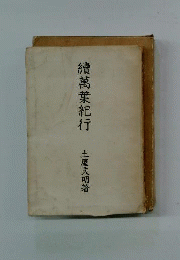 續萬葉紀行
土屋文明著